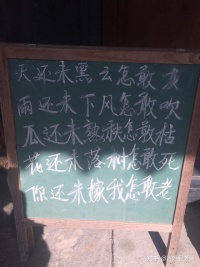 天还未黑云怎敢灰
雨还未下风怎敢吹
瓜还未熟秧怎敢枯
花还未落树怎敢死
你还未嫁我怎敢老